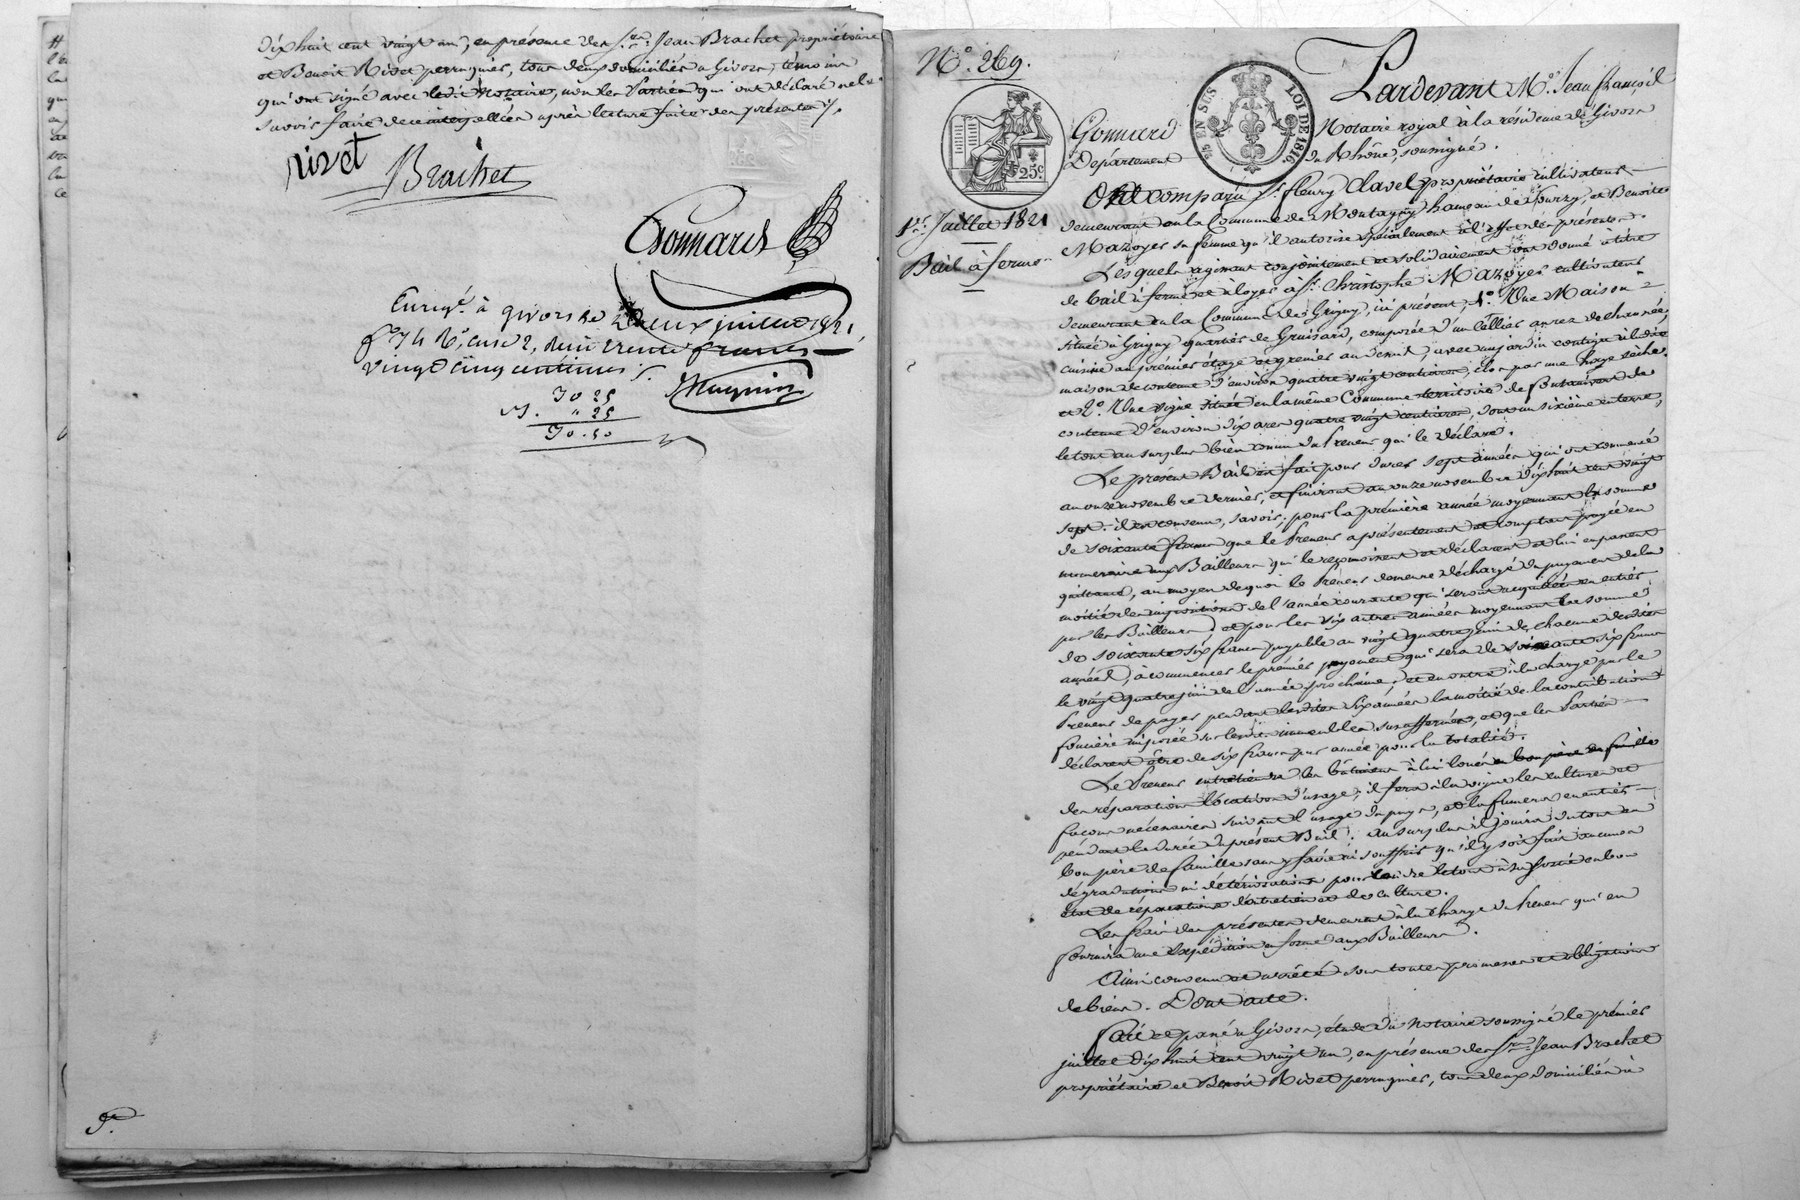 dix huit cent vingt un, en présence des Srs. Jean Brachet propriétaire
et Benoit Rivet perruquier, tous deux domiciliés à Givors, témoins
qui ont signé avec ledit Notaire, non les Parties qui ont déclaré ne le
savoir faire de ce interpellées après lecture faite des présentes ./.
rivet
Brachet
Gonnard
Enregé. à givors le deux juillet 1821,
fo. 74 Ro. case 2, reçu trente francs
vingt cinq centimes
30 25
" 25
30.50
No. 269.
25c.
EN SUS
LOI DE 1816
1er. Juillet 1821
Bail à ferme
Pardevant Me. Jean françois
Gonnard Notaire royal à la résidence de Givors
Département du Rhône, soussigné.
Ont comparu Sr. fleury Clavel propriétaire cultivateur
demeurant en la Commune de Montagny hameau de fourzy, et Benoite
Mazoyer sa femme qu'il autorise spécialement à l'effet des présentes.
Lesquels agissant conjointement et solidairement ont donné à titre
de bail à ferme et à loyer à Sr. Christophe Mazoyer cultivateur
demeurant en la Commune de Grigny, ici présent, 1o. Une Maison
située à Grigny quartier de Gruisard, composée d'un Cellier au rez de chaussée,
cuisine au premier étage et grenier au dessus, avec un jardin contigu à ladite
maison de contenue d'environ quatre vingt centiares, clos par une haye sèche
et 2o. Une vigne située en la même Commune territoire de
contenue d'environ dix ares quatre vingt centiares, dont un sixième en terre,
le tout au surplus bien connu du Preneur qui le déclare.
Le présent Bail est fait pour durer sept années qui ont commencé
au onze novembre dernier, et finiront au onze novembre dix huit cent vingt
sept. il est convenu, savoir; pour la première année moyennant la somme
de soixante francs que le Preneur a présentement et comptant payée en
numéraire aux Bailleurs qui le reconnoissent et déclarent et lui en passent
quittance, au moyen de quoi le Preneur demeure déchargé du payement de la
moitié des impositions de l'année courante qui seront acquittées en entier
par les Bailleurs; et pour les six autres années moyennant la somme
de soixante six francs payable au vingt quatre juin de chacune desdites
années, à commencer le premier payement qui sera de soixante six francs
le vingt quatre juin de l'année prochaine, et en outre à la charge par le
Preneur de payer pendant lesdites six années la moitié de la contribution
foncière imposée sur lesdits immeubles sus affermés, et que les Parties
déclarent être de six francs par année pour la totalité.
Le Preneur entretiendra les bâtimens à lui loués en bon père de famille
des réparations locatives d'usage; il fera à la vigne les cultures et
façons nécessaires suivant l'usage du pays, et la fumera en entier
pendant la durée du présent Bail; au surplus il jouira du tout en
bon père de famille sans y faire ni souffrir qu'il y soit fait aucunes
dégradations ni détériorations pour rendre le tout à sa sortie en bon
état de réparations d'entretien et de culture.
Les frais des présentes demeurent à la charge du Preneur qui en
fournira une expédition en forme aux Bailleurs.
Ainsi convenu et arrêté sous toutes promesses et obligations
de biens. Dont acte.
Fait et passé à Givors, étude du Notaire soussigné le premier
juillet dix huit cent vingt un, en présence des Srs. Jean Brachet
propriétaire et Benoit Rivet perruquier, tous deux domiciliés à